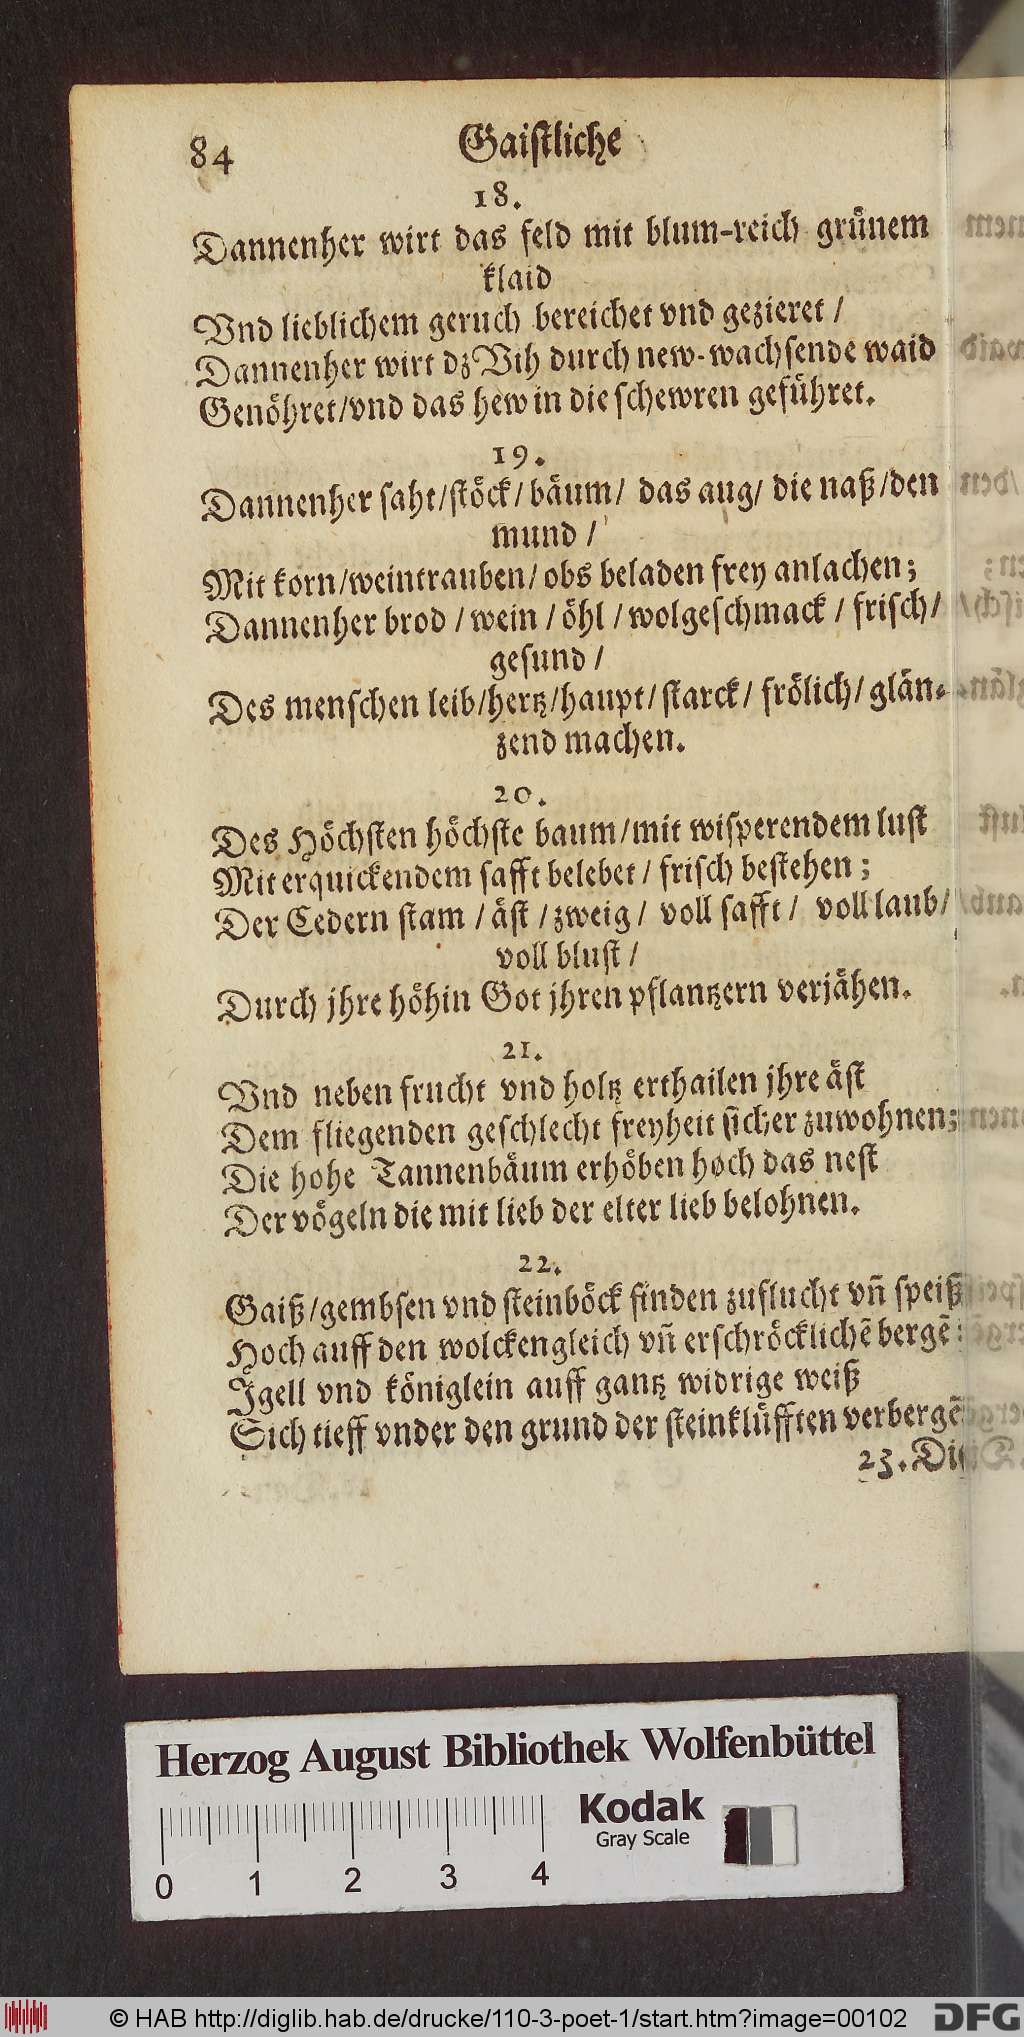 84 Gaistliche
18.
Dannenher wirt das feld mit blum-reich grünem
klaid
Vnd lieblichem geruch bereichet vnd gezieret /
Dannenher wirt dz Vih durch new-wachsende waid
Genöhret/vnd das hew in die schewren geführet.
19.
Dannenher saht/stöck/ bäum/ das aug/ die naß/den
mund /
Mit korn/weintrauben/ obs beladen frey anlachen;
Dannenher brod / wein / öhl / wolgeschmack / frisch/
gesund /
Des menschen leib/hertz/haupt/starck/ frölich/ glän-
zend machen.
20.
Des Höchsten höchste baum/mit wisperendem lust
Mit erquickendem safft belebet / frisch bestehen;
Der Cedern stam / äst / zweig / voll safft / voll laub/
voll blust /
Durch jhre höhin Got jhren pflantzern verjähen.
21.
Vnd neben frucht vnd holtz erthailen jhre äst
Dem fliegenden geschlecht freyheit sicher zuwohnen;
Die hohe Tannenbäum erhöben hoch das nest
Der vögeln die mit lieb der elter lieb belohnen.
22.
Gaiß/gembsen vnd steinböck finden zuflucht vn̄ speiß
Hoch auff den wolckengleich vn̄ erschröcklichē bergē:
Igell vnd königlein auff gantz widrige weiß
Sich tieff vnder den grund der steinklüfften verbergē
23. Die
Herzog August Bibliothek Wolfenbüttel
Kodak
Gray Scale
0 1 2 3 4
© HAB http://diglib.hab.de/drucke/110-3-poet-1/start.htm?image=00102 DFG